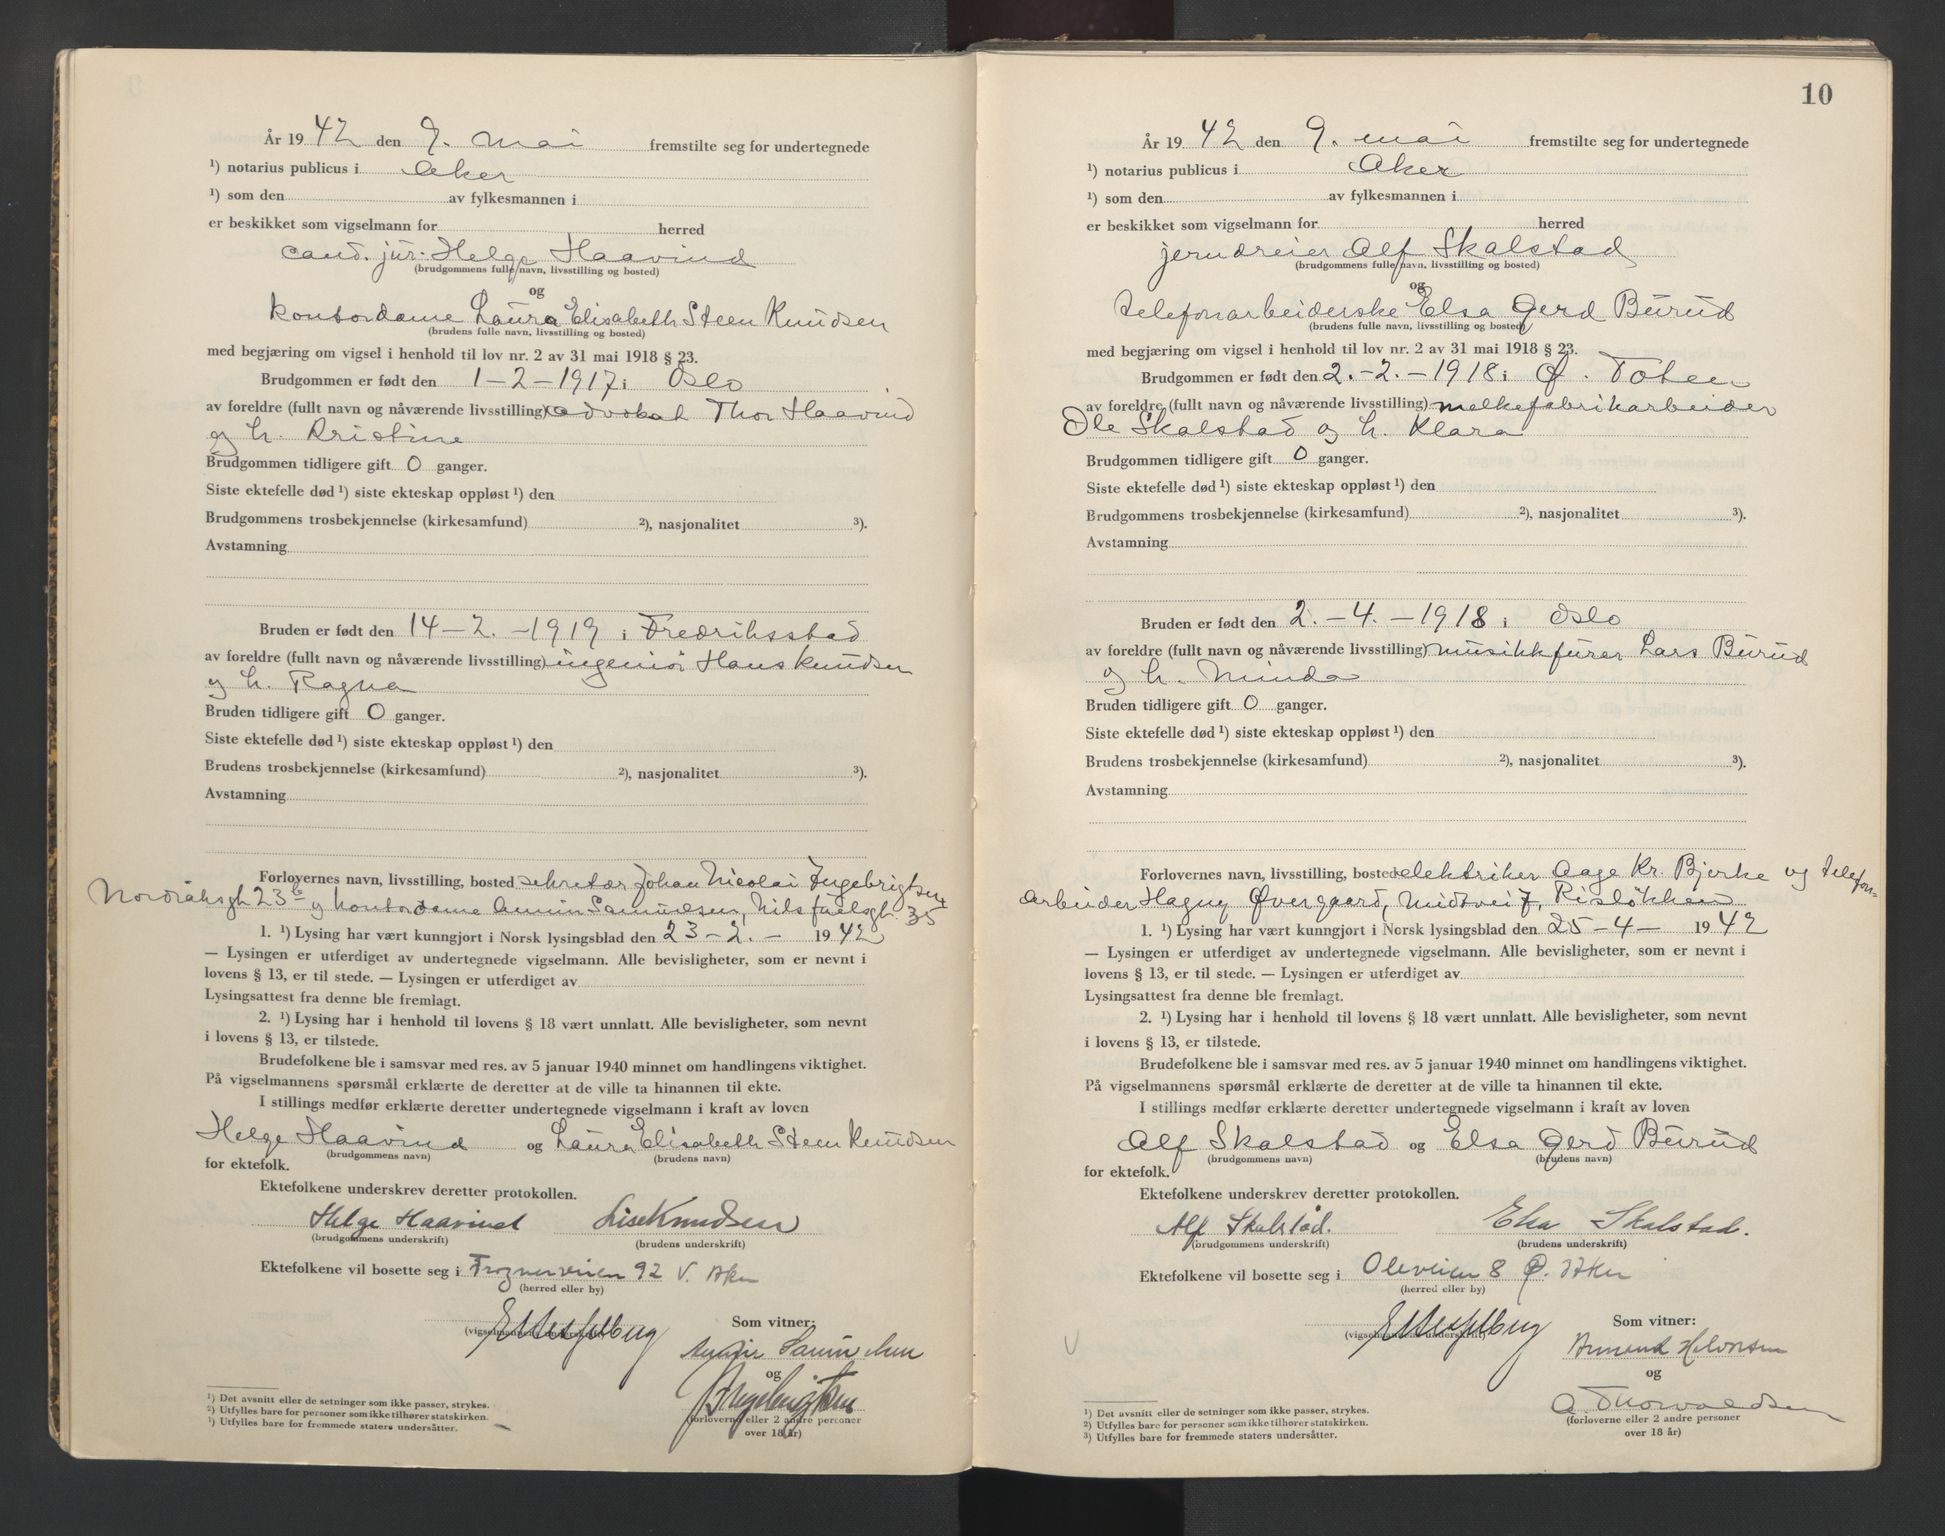 År 1942 den 9. mai fremstilte seg for undertegnede
¹) notarius publicus i Aker
¹) som den av fylkesmannen i
er beskikket som vigselmann for herred
cand. jur. Helge Haavind
(brudgommens fulle navn, livsstilling og bosted)
og
kontordame Laura Elisabeth Steen Knudsen
(brudens fulle navn, livsstilling og bosted)
med begjæring om vigsel i henhold til lov nr. 2 av 31 mai 1918 § 23.
Brudgommen er født den 1-2-1917 i Oslo
av foreldre (fullt navn og nåværende livsstilling) advokat Thor Haavind
og h. Kristine
Brudgommen tidligere gift 0 ganger.
Siste ektefelle død ¹) siste ekteskap oppløst ¹) den
Brudgommens trosbekjennelse (kirkesamfund) ²), nasjonalitet ³).
Avstamning
Bruden er født den 14-2.-1919 i Fredriksstad
av foreldre (fullt navn og nåværende livsstilling) ingeniør Hans Knudsen
og h. Ragna
Bruden tidligere gift 0 ganger.
Siste ektefelle død ¹) siste ekteskap oppløst ¹) den
Brudens trosbekjennelse (kirkesamfund) ²), nasjonalitet ³).
Avstamning
Forlovernes navn, livsstilling, bosted sekretær Johan Nicolai Ingebrigtsen
Nordraksgt. 23 b og kontordame Annin Samuelsen, Nils Juelsgt. 35
1. ¹) Lysing har vært kunngjort i Norsk lysingsblad den 23-2.- 1942
— Lysingen er utferdiget av undertegnede vigselmann. Alle bevisligheter, som er nevnt i
lovens § 13, er til stede. — Lysingen er utferdiget av
Lysingsattest fra denne ble fremlagt.
2. ¹) Lysing har i henhold til lovens § 18 vært unnlatt. Alle bevisligheter, som nevnt
i lovens § 13, er tilstede.
Brudefolkene ble i samsvar med res. av 5 januar 1940 minnet om handlingens viktighet.
På vigselmannens spørsmål erklærte de deretter at de ville ta hinannen til ekte.
I stillings medfør erklærte deretter undertegnede vigselmann i kraft av loven
Helge Haavind og Laura Elisabeth Steen Knudsen
(brudgommens navn) (brudens navn)
for ektefolk.
Ektefolkene underskrev deretter protokollen.
Helge Haavind Lise Knudsen
(brudgommens underskrift) (brudens underskrift)
Ektefolkene vil bosette seg i Frognerveien 92 V. Aker
(herred eller by)
Som vitner:
(vigselmannens underskrift)
Samuelsen
og
Ingebrigtsen
(forloverne eller 2 andre personer
over 18 år)
¹) Det avsnitt eller de setninger som ikke passer, strykes.
²) Utfylles bare for personer som ikke tilhører statskirken.
³) Utfylles bare for fremmede staters undersåtter.
10
År 1942 den 9. mai fremstilte seg for undertegnede
¹) notarius publicus i Aker
¹) som den av fylkesmannen i
er beskikket som vigselmann for herred
jerndreier Alf Skalstad
(brudgommens fulle navn, livsstilling og bosted)
og
telefonarbeiderske Elsa Gerd Burud
(brudens fulle navn, livsstilling og bosted)
med begjæring om vigsel i henhold til lov nr. 2 av 31 mai 1918 § 23.
Brudgommen er født den 2.-2.-1918 i Ø. Toten
av foreldre (fullt navn og nåværende livsstilling) melkefabrikarbeider
Ole Skalstad og h. Klara
Brudgommen tidligere gift 0 ganger.
Siste ektefelle død ¹) siste ekteskap oppløst ¹) den
Brudgommens trosbekjennelse (kirkesamfund) ²), nasjonalitet ³).
Avstamning
Bruden er født den 2.-4.-1918 i Oslo
av foreldre (fullt navn og nåværende livsstilling) musikkfurer Lars Burud
og h. Minda
Bruden tidligere gift 0 ganger.
Siste ektefelle død ¹) siste ekteskap oppløst ¹) den
Brudens trosbekjennelse (kirkesamfund) ²), nasjonalitet ³).
Avstamning
Forlovernes navn, livsstilling, bosted elektriker Aage Kr. Bjerke og telefon-
arbeider Hagny Øvergaard, Midtvei 7, Risløkken
1. ¹) Lysing har vært kunngjort i Norsk lysingsblad den 25-4- 1942
— Lysingen er utferdiget av undertegnede vigselmann. Alle bevisligheter, som er nevnt i
lovens § 13, er til stede. — Lysingen er utferdiget av
Lysingsattest fra denne ble fremlagt.
2. ¹) Lysing har i henhold til lovens § 18 vært unnlatt. Alle bevisligheter, som nevnt
i lovens § 13, er tilstede.
Brudefolkene ble i samsvar med res. av 5 januar 1940 minnet om handlingens viktighet.
På vigselmannens spørsmål erklærte de deretter at de ville ta hinannen til ekte.
I stillings medfør erklærte deretter undertegnede vigselmann i kraft av loven
Alf Skalstad og Elsa Gerd Burud
(brudgommens navn) (brudens navn)
for ektefolk.
Ektefolkene underskrev deretter protokollen.
Alf Skalstad. Elsa Skalstad.
(brudgommens underskrift) (brudens underskrift)
Ektefolkene vil bosette seg i Oleveien 8 Ø. Aker
(herred eller by)
Som vitner:
(vigselmannens underskrift)
Halvorsen
og
A. Thorvaldsen
(forloverne eller 2 andre personer
over 18 år)
¹) Det avsnitt eller de setninger som ikke passer, strykes.
²) Utfylles bare for personer som ikke tilhører statskirken.
³) Utfylles bare for fremmede staters undersåtter.